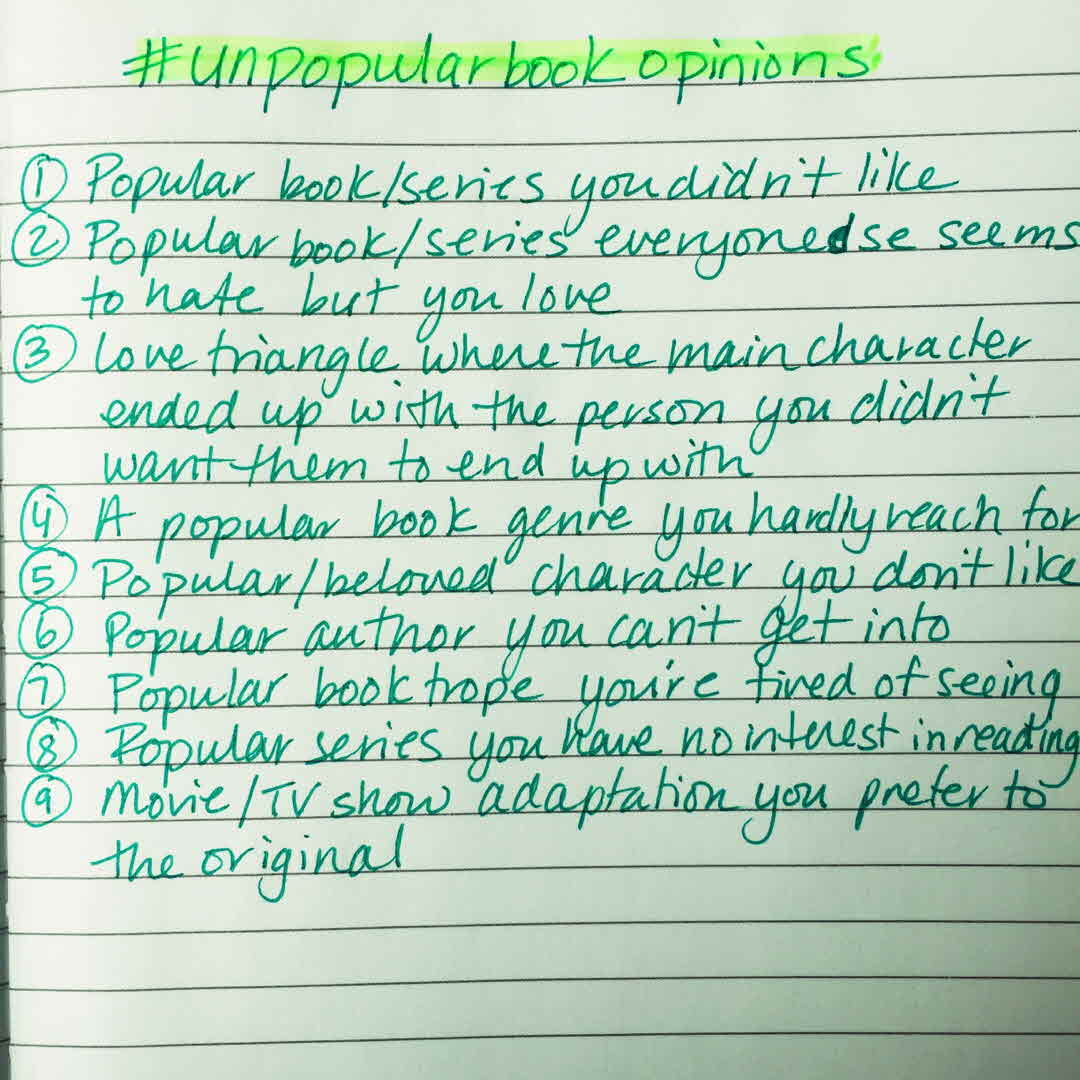 #unpopularbookopinions
① Popular book/series you didn't like
② Popular book/series everyone else seems
to hate but you love
③ Love triangle where the main character
ended up with the person you didn't
want them to end up with
④ A popular book genre you hardly reach for
⑤ Popular/beloved character you don't like
⑥ Popular author you can't get into
⑦ Popular book trope you're tired of seeing
⑧ Popular series you have no interest in reading
⑨ Movie/TV show adaptation you prefer to
the original